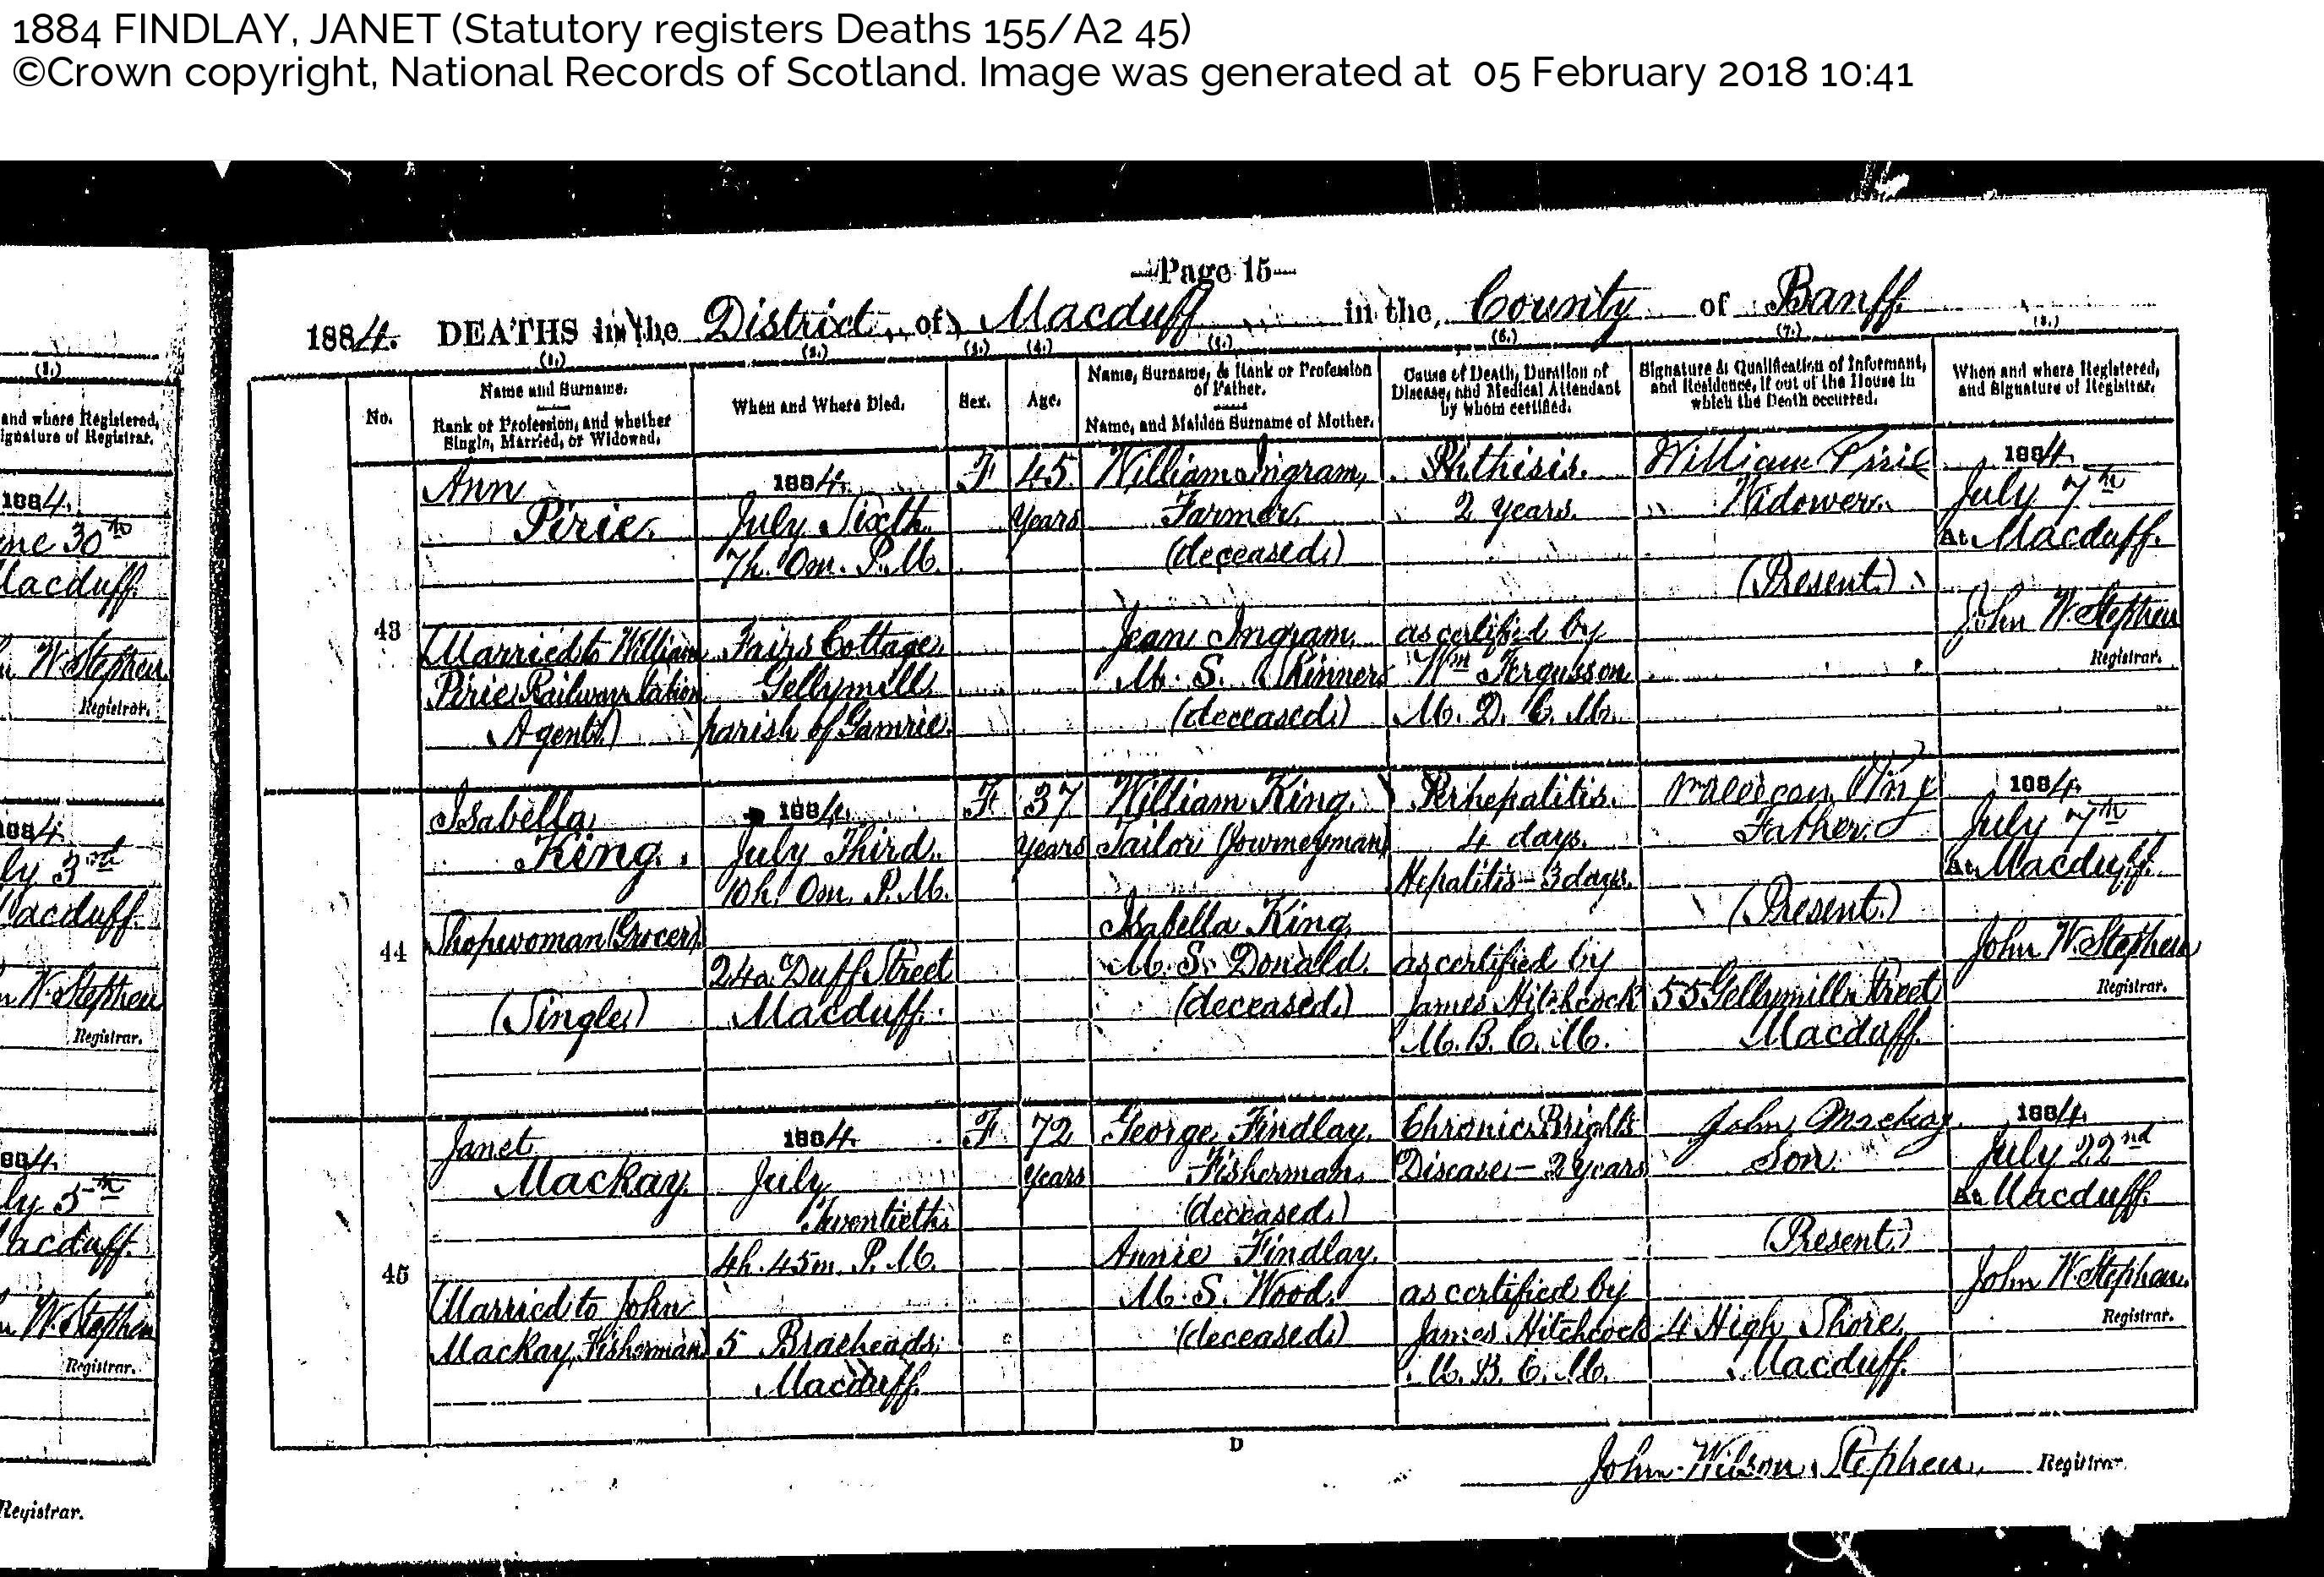 1884 FINDLAY, JANET (Statutory registers Deaths 155/A2 45)
©Crown copyright, National Records of Scotland. Image was generated at 05 February 2018 10:41
Page 15
1884. DEATHS in the District of Macduff in the County of Banff
(1.) (2.) (3.) (4.) (5.) (6.) (7.) (8.)
No.
Name and Surname.
Rank or Profession, and whether
Single, Married, or Widowed.
When and Where Died.
Sex.
Age.
Name, Surname, & Rank or Profession
of Father.
Name, and Maiden Surname of Mother.
Cause of Death, Duration of
Disease, and Medical Attendant
by whom certified.
Signature & Qualification of Informant,
and Residence, if out of the House in
which the Death occurred.
When and where Registered,
and Signature of Registrar.
43
Ann
Pirie
(Married to William
Pirie Railway Station
Agent)
1884.
July Sixth
7h. 0m. P.M.
Fairs Cottage
Gellymill
parish of Gamrie
F
45
Years
William Ingram,
Farmer
(deceased)
Jean Ingram
M. S. Skinner
(deceased)
Phthisis.
2 years.
as certified by
Wm Fergusson
M. D. C. M.
William Pirie
Widower.
(Present.)
1884.
July 7th
At Macduff.
John W. Stephen
Registrar.
44
Isabella
King.
Shopwoman (Grocers)
(Single)
1884.
July Third.
10h. 0m. P.M.
24a Duff Street
Macduff.
F
37
Years
William King
Tailor (Journeyman)
Isabella King
M. S. Donald.
(deceased)
Perhepatitis.
4 days.
Hepatitis - 3 days.
as certified by
James Hitchcock
M. B. C. M.
William King
Father.
(Present.)
55 Gellymill Street
Macduff.
1884.
July 7th
At Macduff.
John W. Stephen
Registrar.
45
Janet
Mackay.
(Married to John
Mackay, Fisherman)
1884.
July
Twentieth
4h. 45m. P.M.
5 Braeheads
Macduff.
F
72
Years
George Findlay
Fisherman
(deceased)
Annie Findlay.
M. S. Wood.
(deceased)
Chronic Brights
Disease - 2 years
as certified by
James Hitchcock
M. B. C. M.
John Mackay
Son.
(Present.)
4 High Shore,
Macduff.
1884.
July 22nd
At Macduff.
John W. Stephen
Registrar.
D
John Wilson Stephen, Registrar.
(8.)
and where Registered,
ignature of Registrar.
1884.
ne 30th
Macduff.
W. Stephen
Registrar.
1884.
ly 3rd
Macduff.
W. Stephen
Registrar.
1884.
ly 5th
Macduff.
W. Stephen
Registrar.
Registrar.